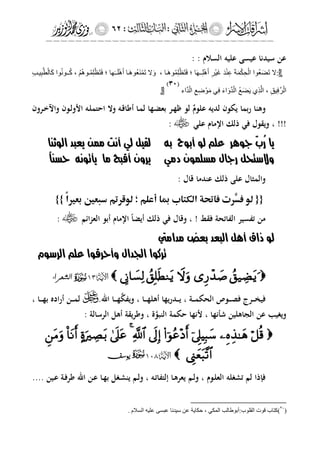 إشراقات الإمام : .......... : ٦٢
عن سيدنا عيسى عليه السلام : :
[لا تَضَعُوا الْحِكْمَةَ عِنْدَ غَيْرِ أَهْلِهَا ، فَتَظْلِمُوهَا ، وَلا تَمْنَعُوهَا أَهْلَهَا ، فَتَظْلِمُوهُمْ ، كُونُوا كَالطَّبِيبِ
الرَّفِيقِ ، الَّذِي يَضَعُ الدَّوَاءَ فِي مَوْضِعِ الدَّاءِ] (٣٠)
وهنا ربما يكون لديه علومٌ لو ظهر بعضها لما أطاقه ولا احتمله الأولون والآخرون
!!! ، ويقول في ذلك الإمام علي :
يا رُبَّ جوهر علم لو أبوح به لقيل لي أنت ممن يعبد الوثنا
ولاستحل رجال مسلمون دمي يرون أقبح ما يأتونه حسناً
والمثال على ذلك عندما قال :
{{ لو فسَّرت فاتحة الكتاب بما أعلم ؛ لوقرتم سبعين بعيراً }}
من تفسير الفاتحة فقط ! ، وقال في ذلك أيضاً الإمام أبو العزائم :
لو ذاق أهل البعد بعض مدامتي
تركوا الجدال وأحرقوا علم الرسوم
﴿ وَيَضِيقُ صَدْرِى وَلَا يَنطَلِقُ لِسَانِى ﴾ [١٣ الشعراء]
فيخرج فصوص الحكمة ، يدريها أهلها ، ويفكّها الله لمن أراده بها ،
ويغيب عن الجاهلين شأنها ، لأنها حكمة النبوَّة ، وطريقة أهل الرسالة :
﴿ قُلْ هَـٰذِهِۦ سَبِيلِىٓ أَدْعُوٓا۟ إِلَى ٱللَّهِ ۚ عَلَىٰ بَصِيرَةٍ أَنَا۠ وَمَنِ
ٱتَّبَعَنِى ﴾ [١٠٨ يوسف]
فإذا لم تشغله العلوم ، ولم يعرها إلتفاته ، ولم ينشغل بها عن الله طرفة عين ....
(٣٠) كتاب قوت القلوب:أبوطالب المكي ، حكاية عن سيدنا عيسى عليه السلام .